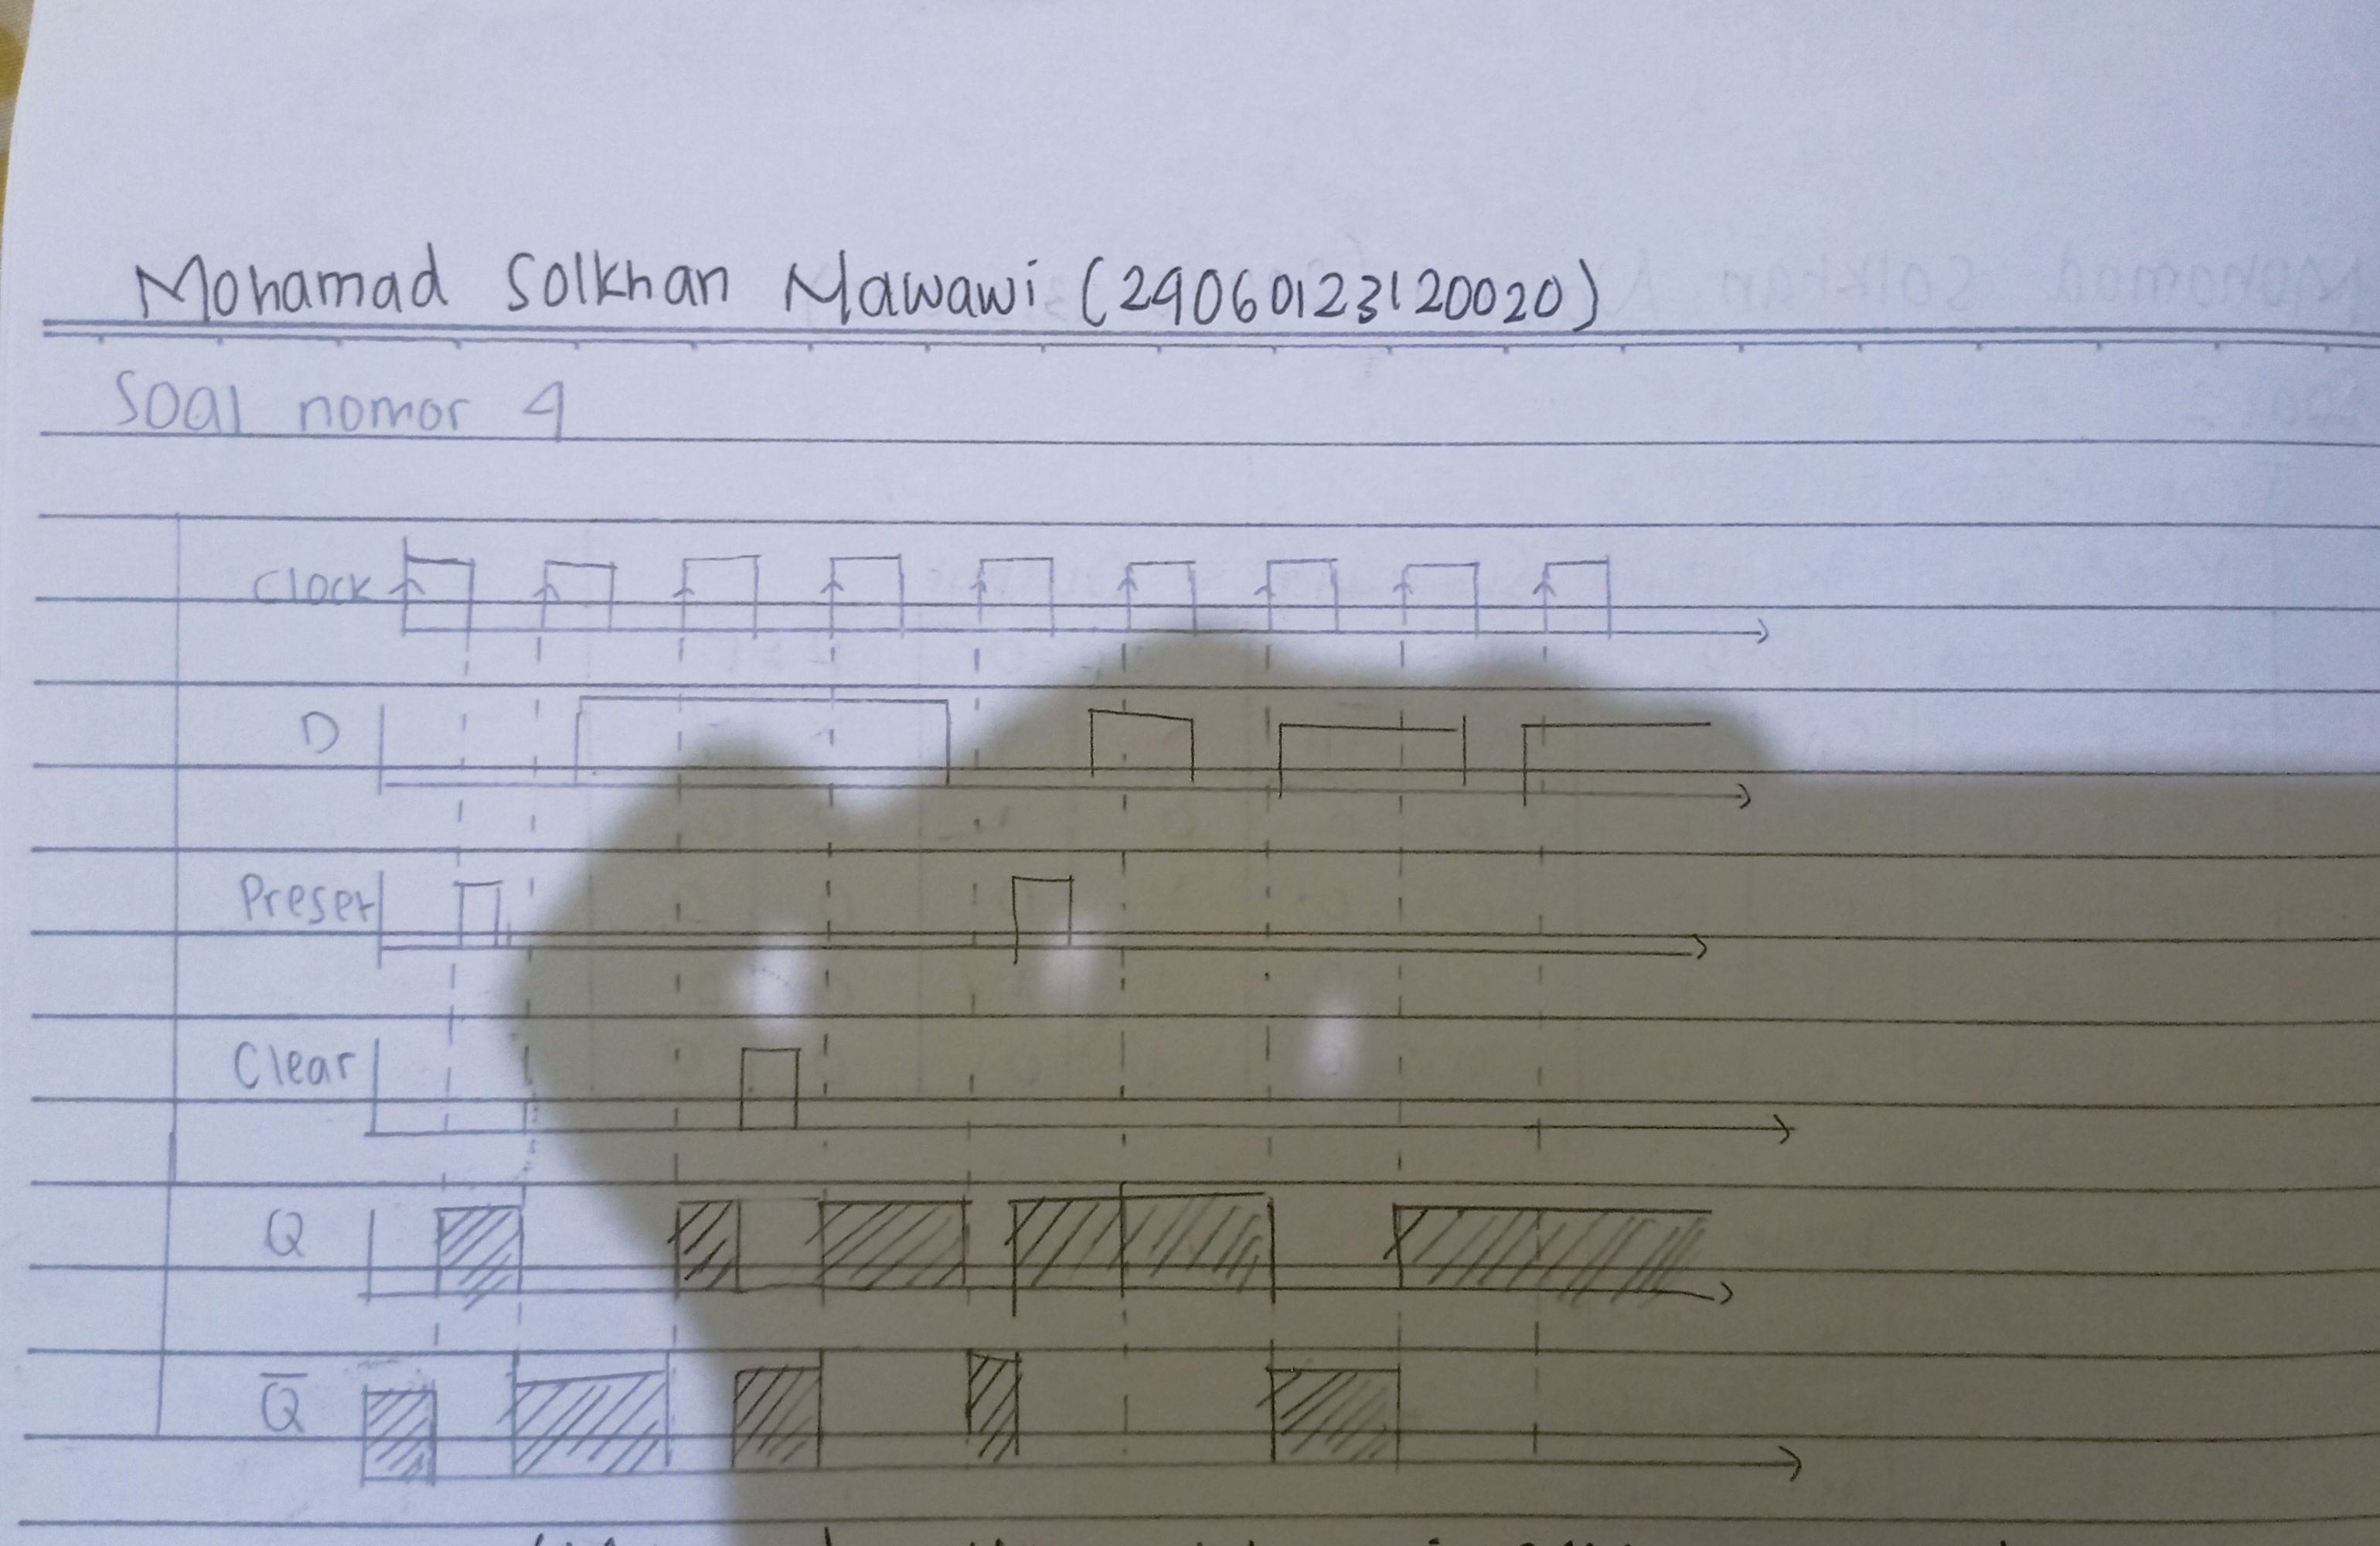 Mohamad Solkhan Mawawi (24060123120020)
Soal nomor 4
Clock
D
Preset
Clear
Q
Q̅